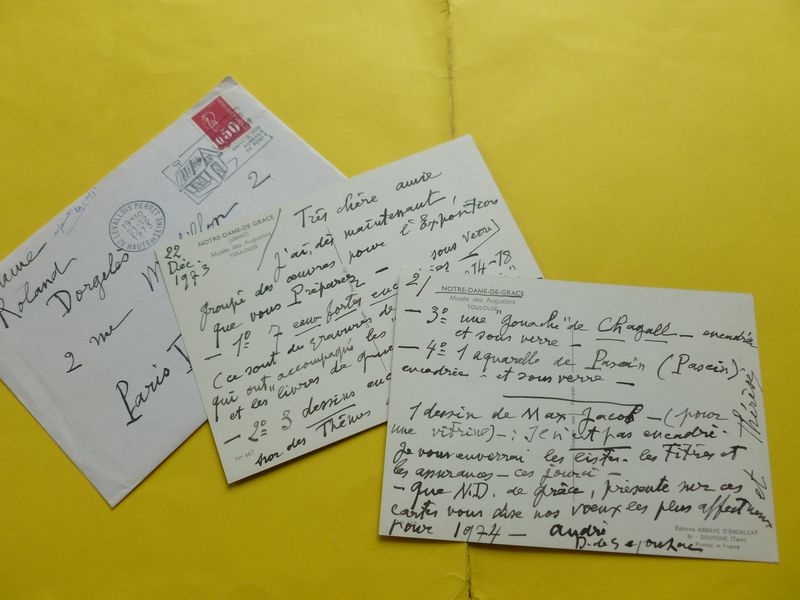 0.50
LEVALLOIS PERRET
1973
HAUTS DE SEINE
Roland
Dorgelès
2 rue
Paris
22
Déc.
1973
NOTRE-DAME-DE GRACE
Musée des Augustins
TOULOUSE
1/ Très chère amie
J'ai, dès maintenant,
groupé des œuvres pour l'Exposition
que vous Préparez -
- 1º 7 eaux fortes
sous verre)
(ce sont des gravures de
14-18
qui ont "accompagné les
et les livres de
- 2º 3 dessins
sur des Thèmes
2/
NOTRE-DAME-DE-GRACE
Musée des Augustins
TOULOUSE
- 3º une gouache de Chagall - encadrée
et sous verre -
- 4º 1 aquarelle de Pascin (Pascin) -
encadrée - et sous verre -
1 dessin de Max Jacob - (pour
une vitrine) - : il n'est pas encadré.
Je vous enverrai les listes - les Titres et
les assurances - ces jours ci -
- que N.D. de grâce, présente sur ces
cartes vous dise nos vœux les plus affectueux
pour 1974 - andré
et Thérèse
Editions ABBAYE D'ENCALCAT
81 - DOURGNE (Tarn)
Printed in France